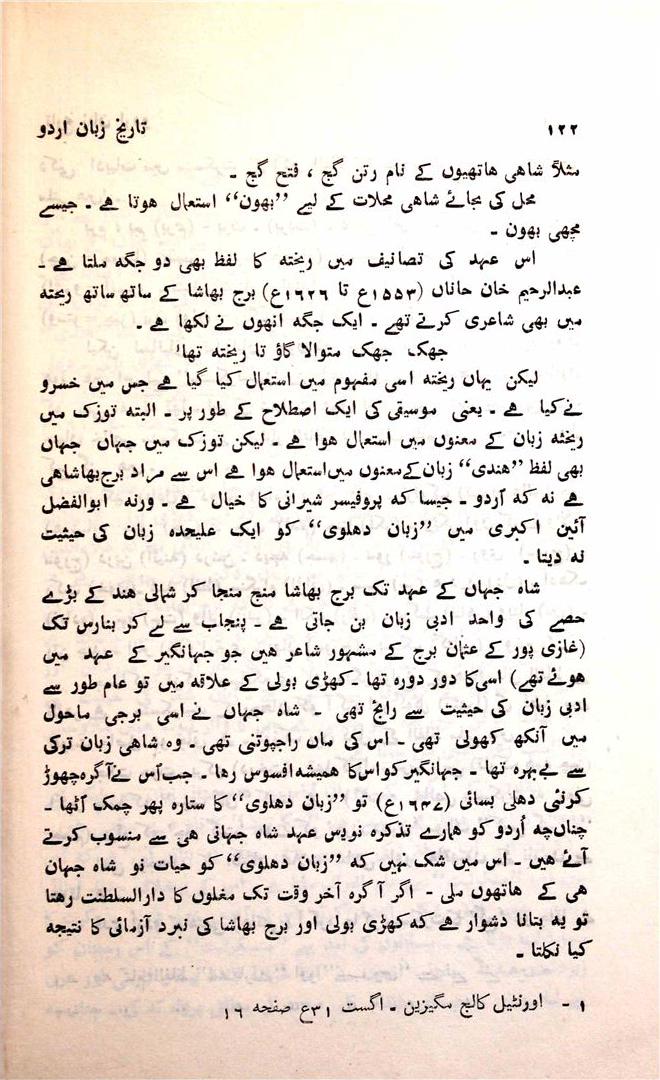 ۱۲۲ تاریخ زبان اردو
مثلاً شاہی ہاتھیوں کے نام رتن گج ، فتح گج ۔
محل کی بجائے شاہی محلات کے لیے ”بھون“ استعمال ہوتا ہے ۔ جیسے
مچھی بھون ۔
اس عہد کی تصانیف میں ریختہ کا لفظ بھی دو جگہ ملتا ہے ۔
عبدالرحیم خان خاناں (۱۵۵۳ع تا ۱۶۲۶ع) برج بھاشا کے ساتھ ساتھ ریختہ
میں بھی شاعری کرتے تھے ۔ ایک جگہ انھوں نے لکھا ہے ۔
جھک جھک متوالا گاؤ تا ریختہ تھا۱
لیکن یہاں ریختہ اسی مفہوم میں استعمال کیا گیا ہے جس میں خسرو
نے کیا ہے ۔ یعنی موسیقی کی ایک اصطلاح کے طور پر ۔ البتہ توزک میں
ریختہ زبان کے معنوں میں استعمال ہوا ہے ۔ لیکن توزک میں جہاں جہاں
بھی لفظ ”ہندی“ زبان کے معنوں میں استعمال ہوا ہے اس سے مراد برج بھاشا ہی
ہے نہ کہ اُردو ۔ جیسا کہ پروفیسر شیرانی کا خیال ہے ۔ ورنہ ابوالفضل
آئین اکبری میں ”زبان دہلوی“ کو ایک علیحدہ زبان کی حیثیت
نہ دیتا ۔
شاہ جہاں کے عہد تک برج بھاشا منج منجا کر شمالی ہند کے بڑے
حصے کی واحد ادبی زبان بن جاتی ہے ۔ پنجاب سے لے کر بنارس تک
(غازی پور کے عثمان برج کے مشہور شاعر ہیں جو جہانگیر کے عہد میں
ہوئے تھے) اسی کا دور دورہ تھا ۔ کھڑی بولی کے علاقہ میں تو عام طور سے
ادبی زبان کی حیثیت سے رائج تھی ۔ شاہ جہاں نے اسی برجی ماحول
میں آنکھ کھولی تھی ۔ اس کی ماں راجپوتنی تھی ۔ وہ شاہی زبان ترکی
سے بے بہرہ تھا ۔ جہانگیر کو اس کا ہمیشہ افسوس رہا ۔ جب اُس نے آگرہ چھوڑ
کر نئی دہلی بسائی (۱۶۴۷ع) تو ”زبان دہلوی“ کا ستارہ پھر چمک اُٹھا ۔
چناں چہ اُردو کو ہمارے تذکرہ نویس عہد شاہ جہانی ہی سے منسوب کرتے
آئے ہیں ۔ اس میں شک نہیں کہ ”زبان دہلوی“ کو حیات نو شاہ جہان
ہی کے ہاتھوں ملی ۔ اگر آگرہ آخر وقت تک مغلوں کا دارالسلطنت رہتا
تو یہ بتانا دشوار ہے کہ کھڑی بولی اور برج بھاشا کی نبرد آزمائی کا نتیجہ
کیا نکلتا ۔
۱ ۔ اورنٹیل کالج مگیزین ۔ اگست ۳۱ع صفحہ ۱۶